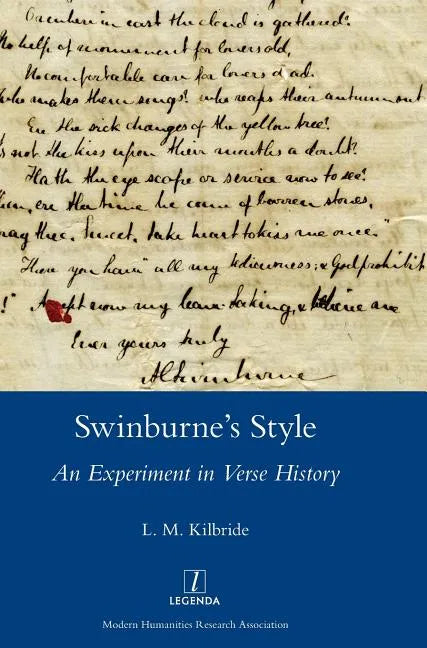 in east the cloud is gathered?
No help of monument for lovers old,
No comfortable care for lovers dead.
Who makes them songs? who reaps their autumn out
In the sick changes of the yellow tree?
Is not the kiss upon their mouths a doubt?
Hath the eye scope or service now to see?
ere the time he come of barren stones,
Sweet, take heart to kiss me once."
There you have "all my tediousness; & God prohibit
!" Accept now my leave-taking, & believe me
Ever yours truly
ACSwinburne
Swinburne's Style
An Experiment in Verse History
L. M. Kilbride
l
LEGENDA
Modern Humanities Research Association